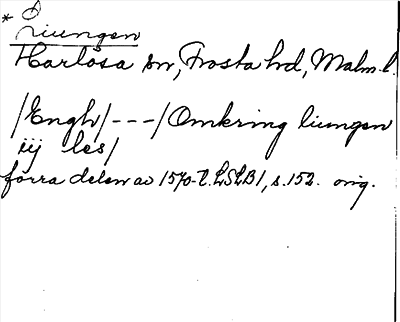 * Ö
Liungen
Harlösa sn, Frosta hd, Malm. l.
/Engh/---/Omkring liungen
iij les/
förra delen av 1570-t. LSLB1, s. 152. orig.